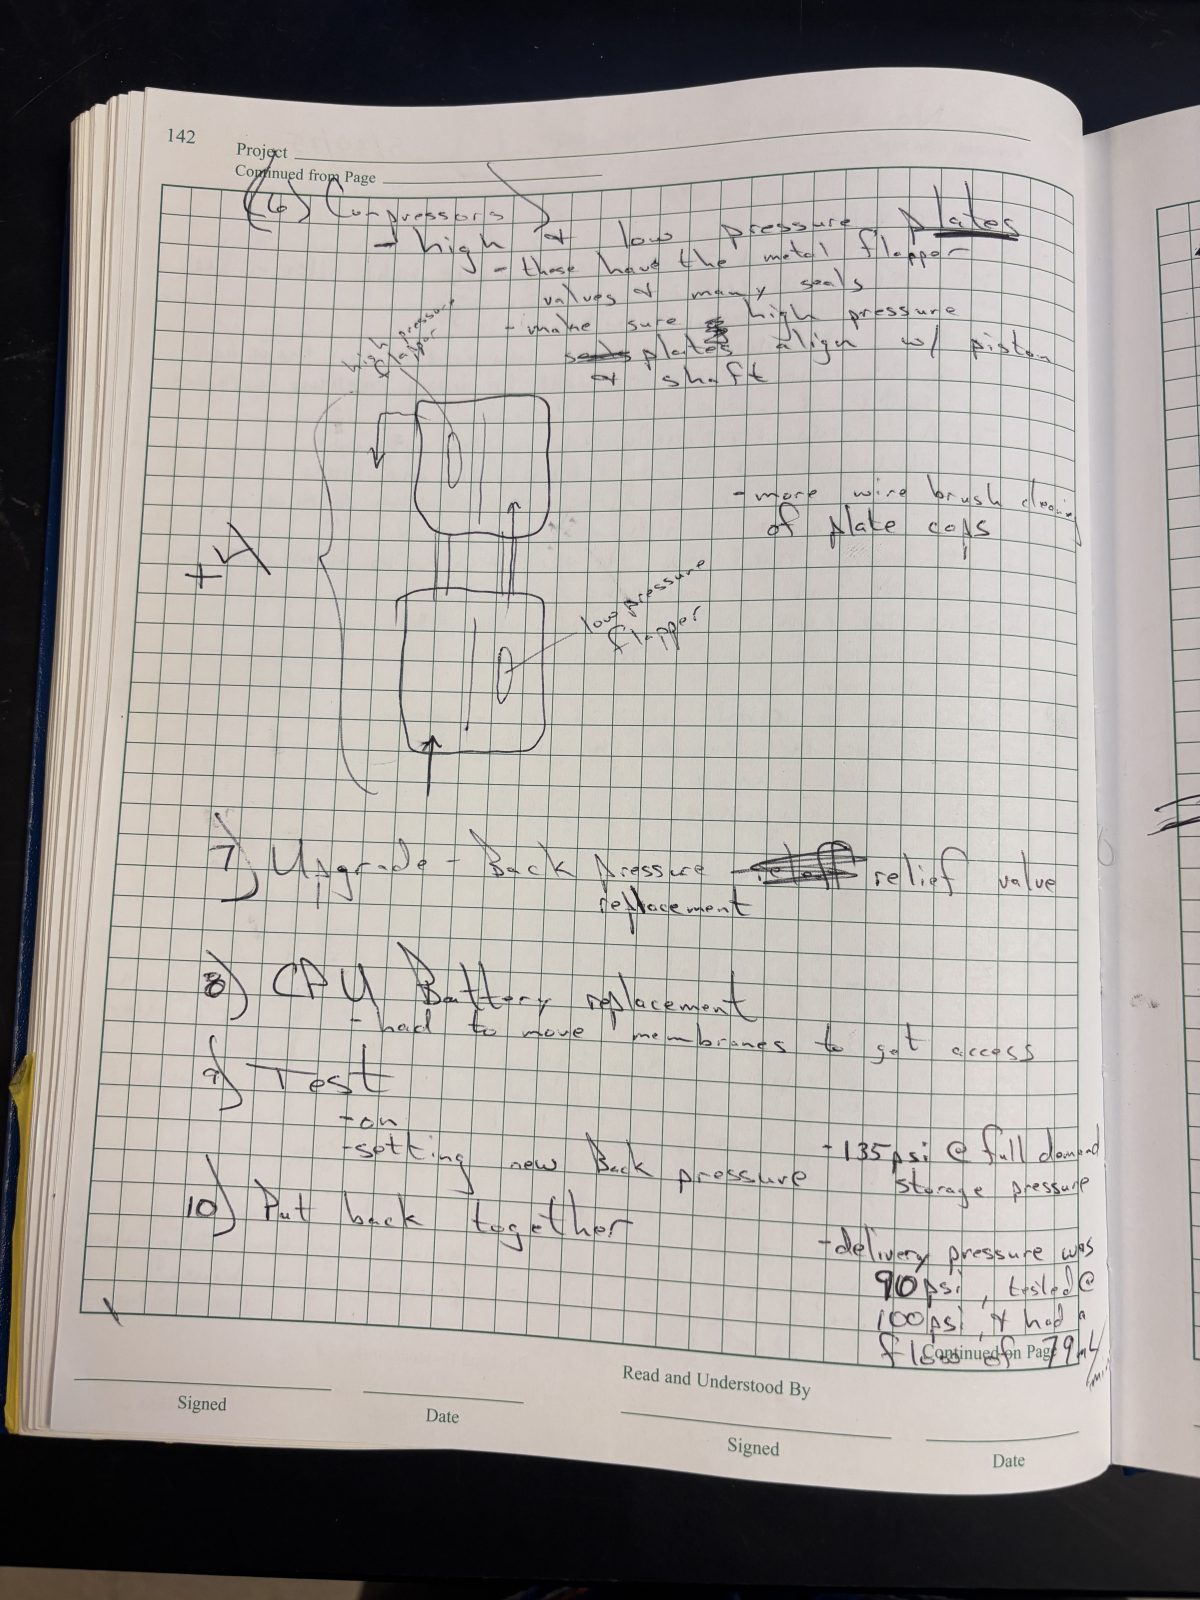 142
Project
Continued from Page
(6) Compressors
- high & low pressure plates
- these have the metal flapper
valves & many seals
- make sure high pressure
seals plates align w/ piston
& shaft
high pressure
flapper
- more wire brush cleaning
of plate caps
+4
low pressure
flapper
7) Upgrade - Back pressure relief valve
replacement
8) CPU Battery replacement
- had to move membranes to get access
9) Test
- on
- setting new Back pressure
- 135psi @ full demand
storage pressure
10) Put back together
- delivery pressure was
90psi, tested @
100psi, & had a
of 79
Continued on Page
Read and Understood By
Signed
Date
Signed
Date